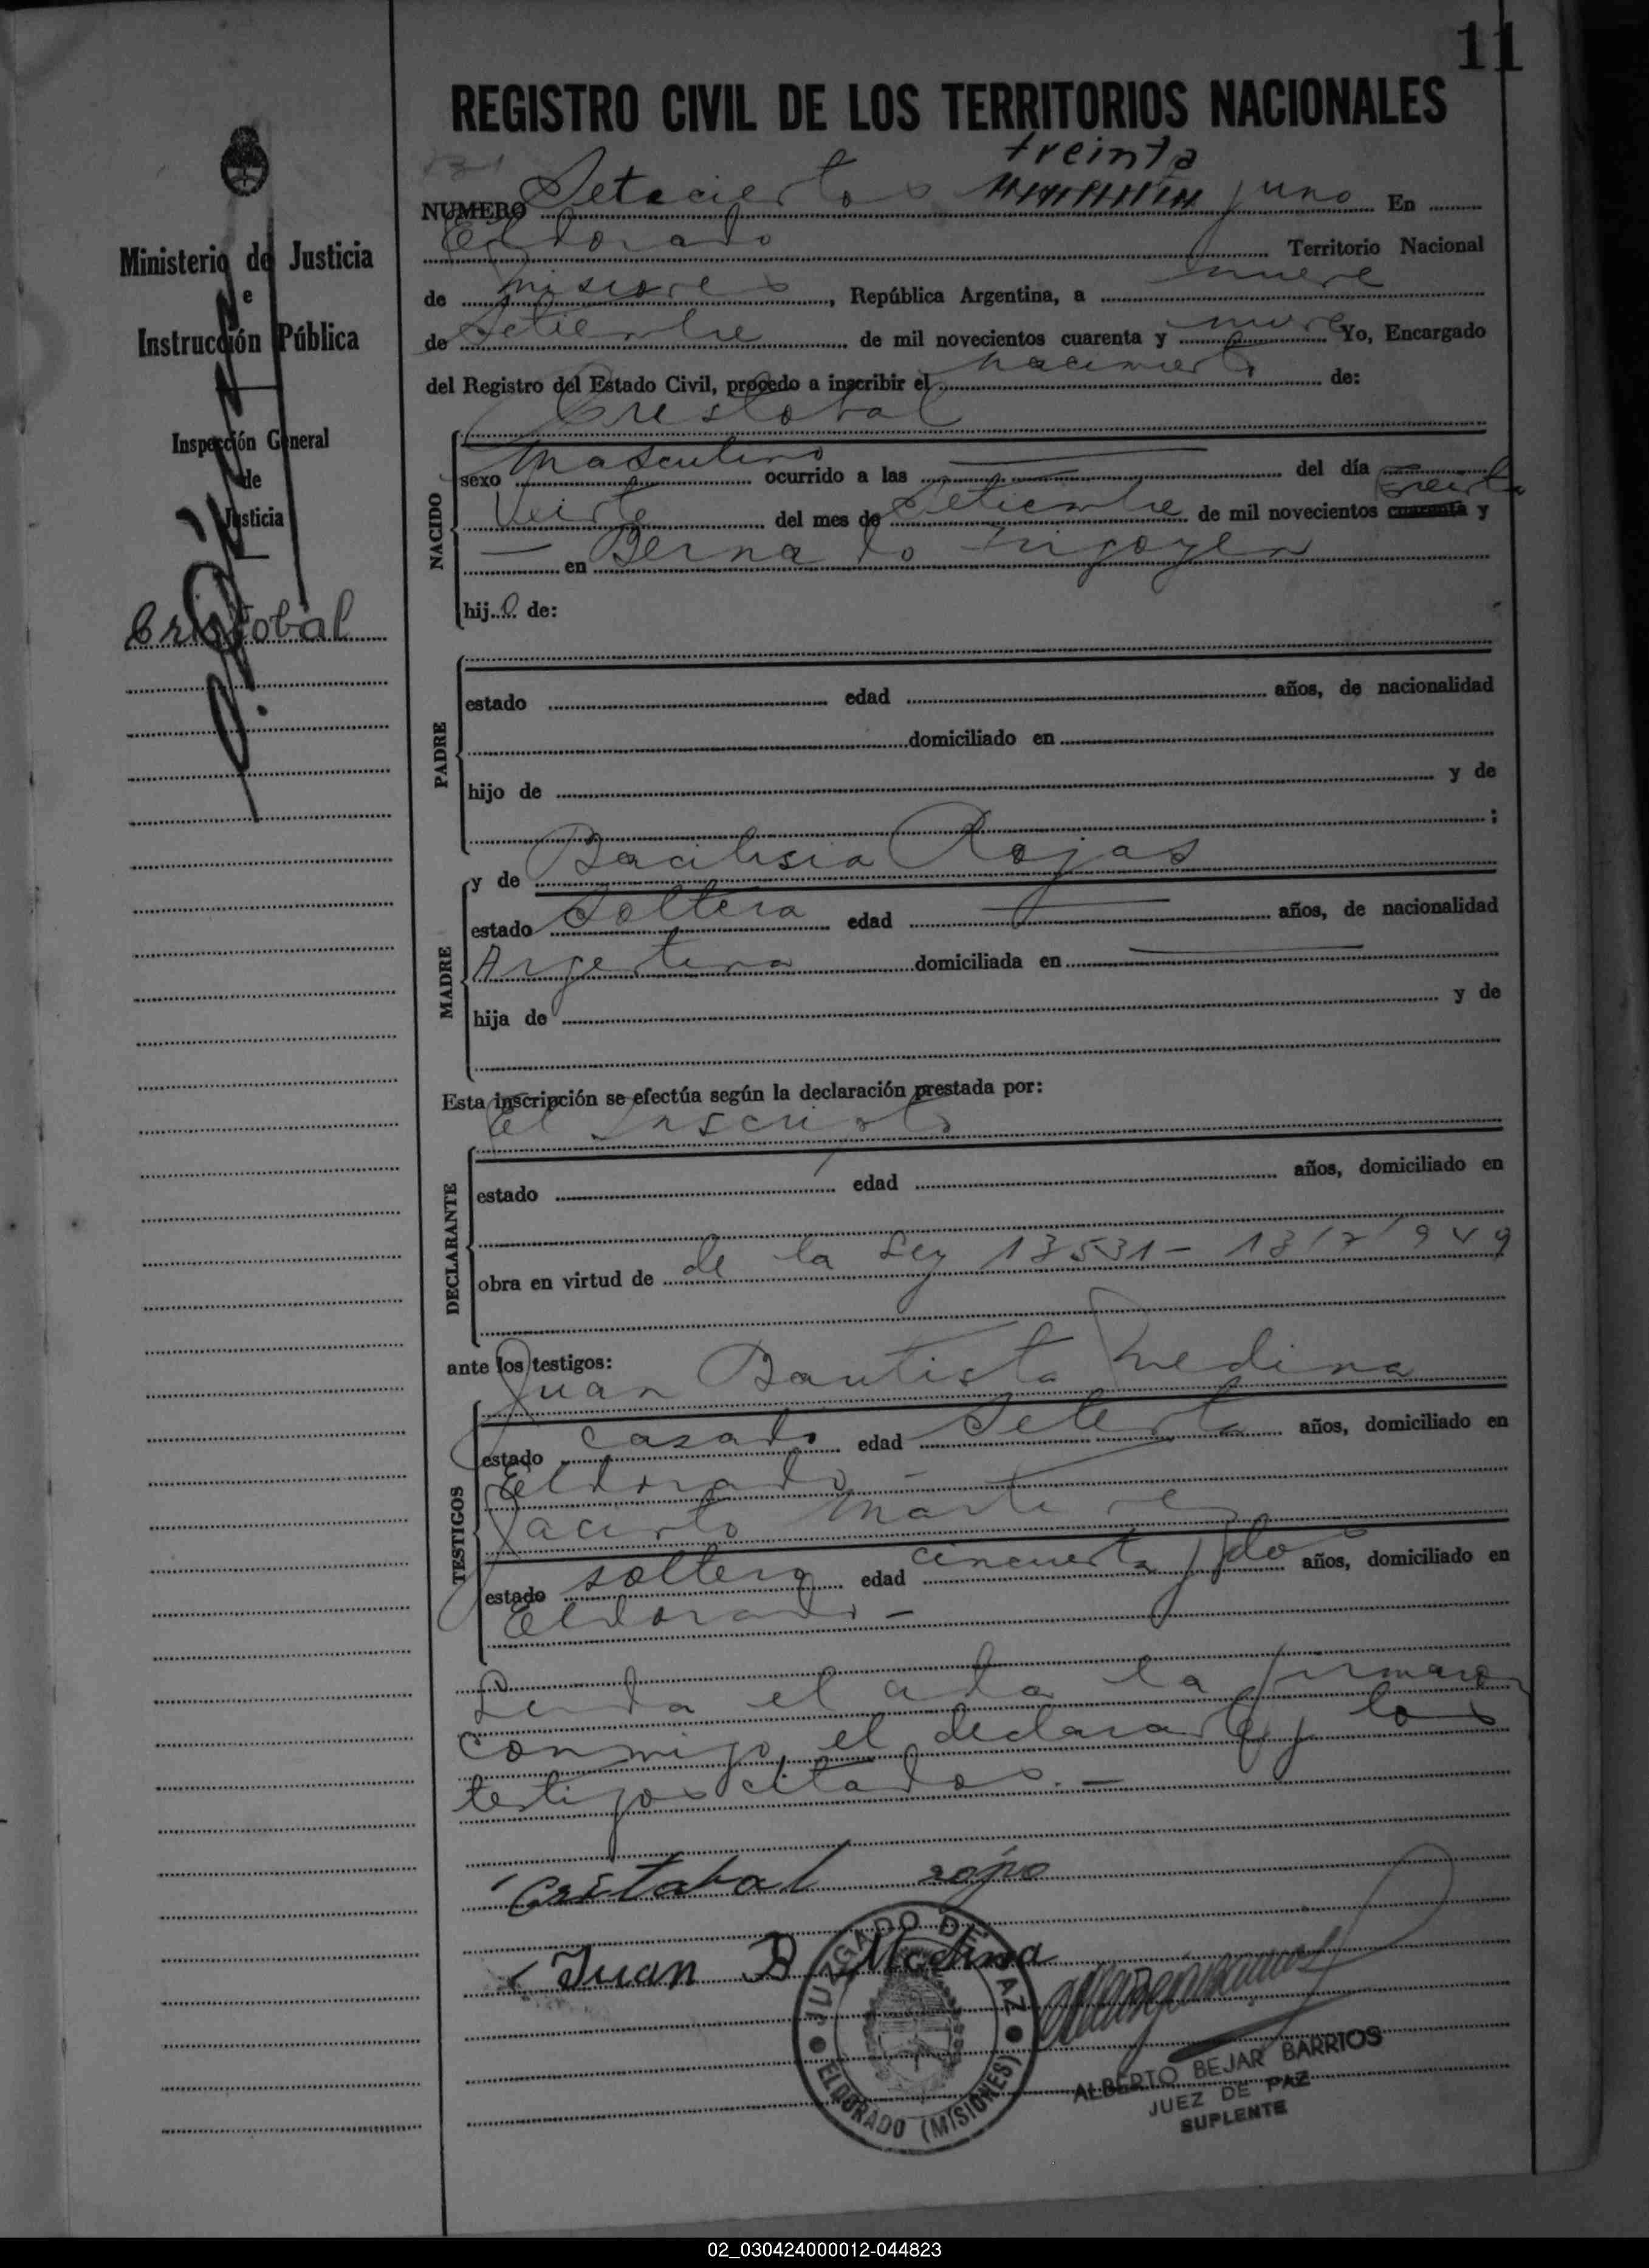 11
REGISTRO CIVIL DE LOS TERRITORIOS NACIONALES
treinta
NUMERO Setecientos y uno En
Eldorado Territorio Nacional
de Misiones, República Argentina, a nueve
de Setiembre de mil novecientos cuarenta y nueve Yo, Encargado
del Registro del Estado Civil, procedo a inscribir el nacimiento de:
Cristobal
NACIDO
sexo Masculino ocurrido a las del día
Veinte del mes de Setiembre de mil novecientos cuarenta treinta y
en Bernardo Irigoyen
hijo de:
PADRE
estado edad años, de nacionalidad
domiciliado en
hijo de y de
;
MADRE
y de Bacilisia Rojas
estado Soltera edad años, de nacionalidad
Argentina domiciliada en
hija de y de
Esta inscripción se efectúa según la declaración prestada por:
el Inscripto
DECLARANTE
estado edad años, domiciliado en
obra en virtud de de la Ley 13531 - 13/7/949
ante los testigos:
Juan Bautista Medina
TESTIGOS
estado casado edad Setenta años, domiciliado en
Eldorado -
Jacinto Martinez
estado soltero edad cincuenta y dos años, domiciliado en
Eldorado -
Leida el acta la firmaron
conmigo, el declarante y los
testigos citados. -
Cristabal rojas
Juan B Medina
JUZGADO DE PAZ
ELDORADO (MISIONES)
ALBERTO BEJAR BARRIOS
JUEZ DE PAZ
SUPLENTE
Ministerio de Justicia
e
Instrucción Pública
Inspección General
de
Justicia
Cristobal
02_030424000012-044823